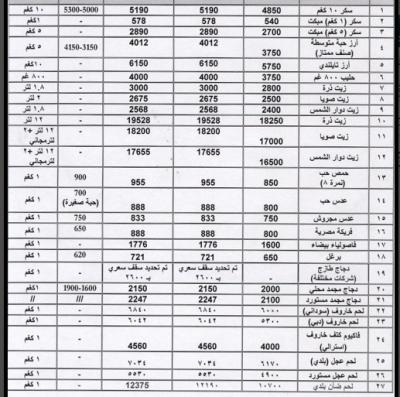 ١ سكر ١٠ كغم 4850 5190 5190 5300-5000 ١٠ كغم
٢ سكر (١ كغم) مبكت 540 578 578 ١كغم
٣ سكر (٥ كغم) مبكت 2700 2890 2890 ٥ كغم
٤ أرز حبة متوسطة (صنف ممتاز) 3750 4012 4012 4150-3150 ٥ كغم
٥ أرز تايلندي 5750 6150 6150 ١٠كغم
٦ حليب ٨٠٠ غم 3750 4000 4000 ٨٠٠ غم
٧ زيت ذرة 2800 3000 3000 ١,٨ لتر
٨ زيت صويا 2500 2675 2675 ٢ لتر
٩ زيت دوار الشمس 2400 2568 2568 ١,٨ لتر
١٠ زيت ذرة 18250 19528 19528 ١٢ لتر
١١ زيت صويا 17000 18200 18200 ١٢ لتر +٢ لترمجاني
١٢ زيت دوار الشمس 16500 17655 17655 ١٢ لتر +٢ لترمجاني
١٣ حمص حب (نمرة ٨) 850 955 955 900 ١ كغم
١٤ عدس حب 800 888 888 700 (حبة صغيرة) ١ كغم
١٥ عدس مجروش 750 833 833 750 ١ كغم
١٦ فريكة مصرية 800 888 888 650 ١ كغم
١٧ فاصولياء بيضاء 1600 1776 1776 ١ كغم
١٨ برغل 650 721 721 620 ١ كغم
١٩ دجاج طازج (شركات مختلفة) تم تحديد سقف سعري بـ ٢٦٠٠ تم تحديد سقف سعري بـ ٢٦٠٠ ١ كغم
٢٠ دجاج مجمد محلي 2000 2150 2150 1900-1600 ١كغم
٢١ دجاج مجمد مستورد 2100 2247 2247 /// //
٢٢ لحم خاروف (سوداني) ٦٠٠٠ ٦٨٤٠ ٦٨٤٠ ١ كغم
٢٣ لحم خاروف (دبي) ٥٣٠٠ ٦٠٤٢ ٦٠٤٢ ١ كغم
٢٤ فاكيوم كتف خاروف (استرالي) 4000 4560 4560 ١ كغم
٢٥ لحم عجل (بلدي) ٦١٧٠ ٧٠٣٤ ٧٠٣٤ ١ كغم
٢٦ لحم عجل مستورد ٤٩٠٠ ٥٥٣٠ ٥٥٣٠ ١ كغم
٢٧ لحم ضان بلدي ١٠٧٠٠ ١٢١٩٠ 12375 ١ كغم